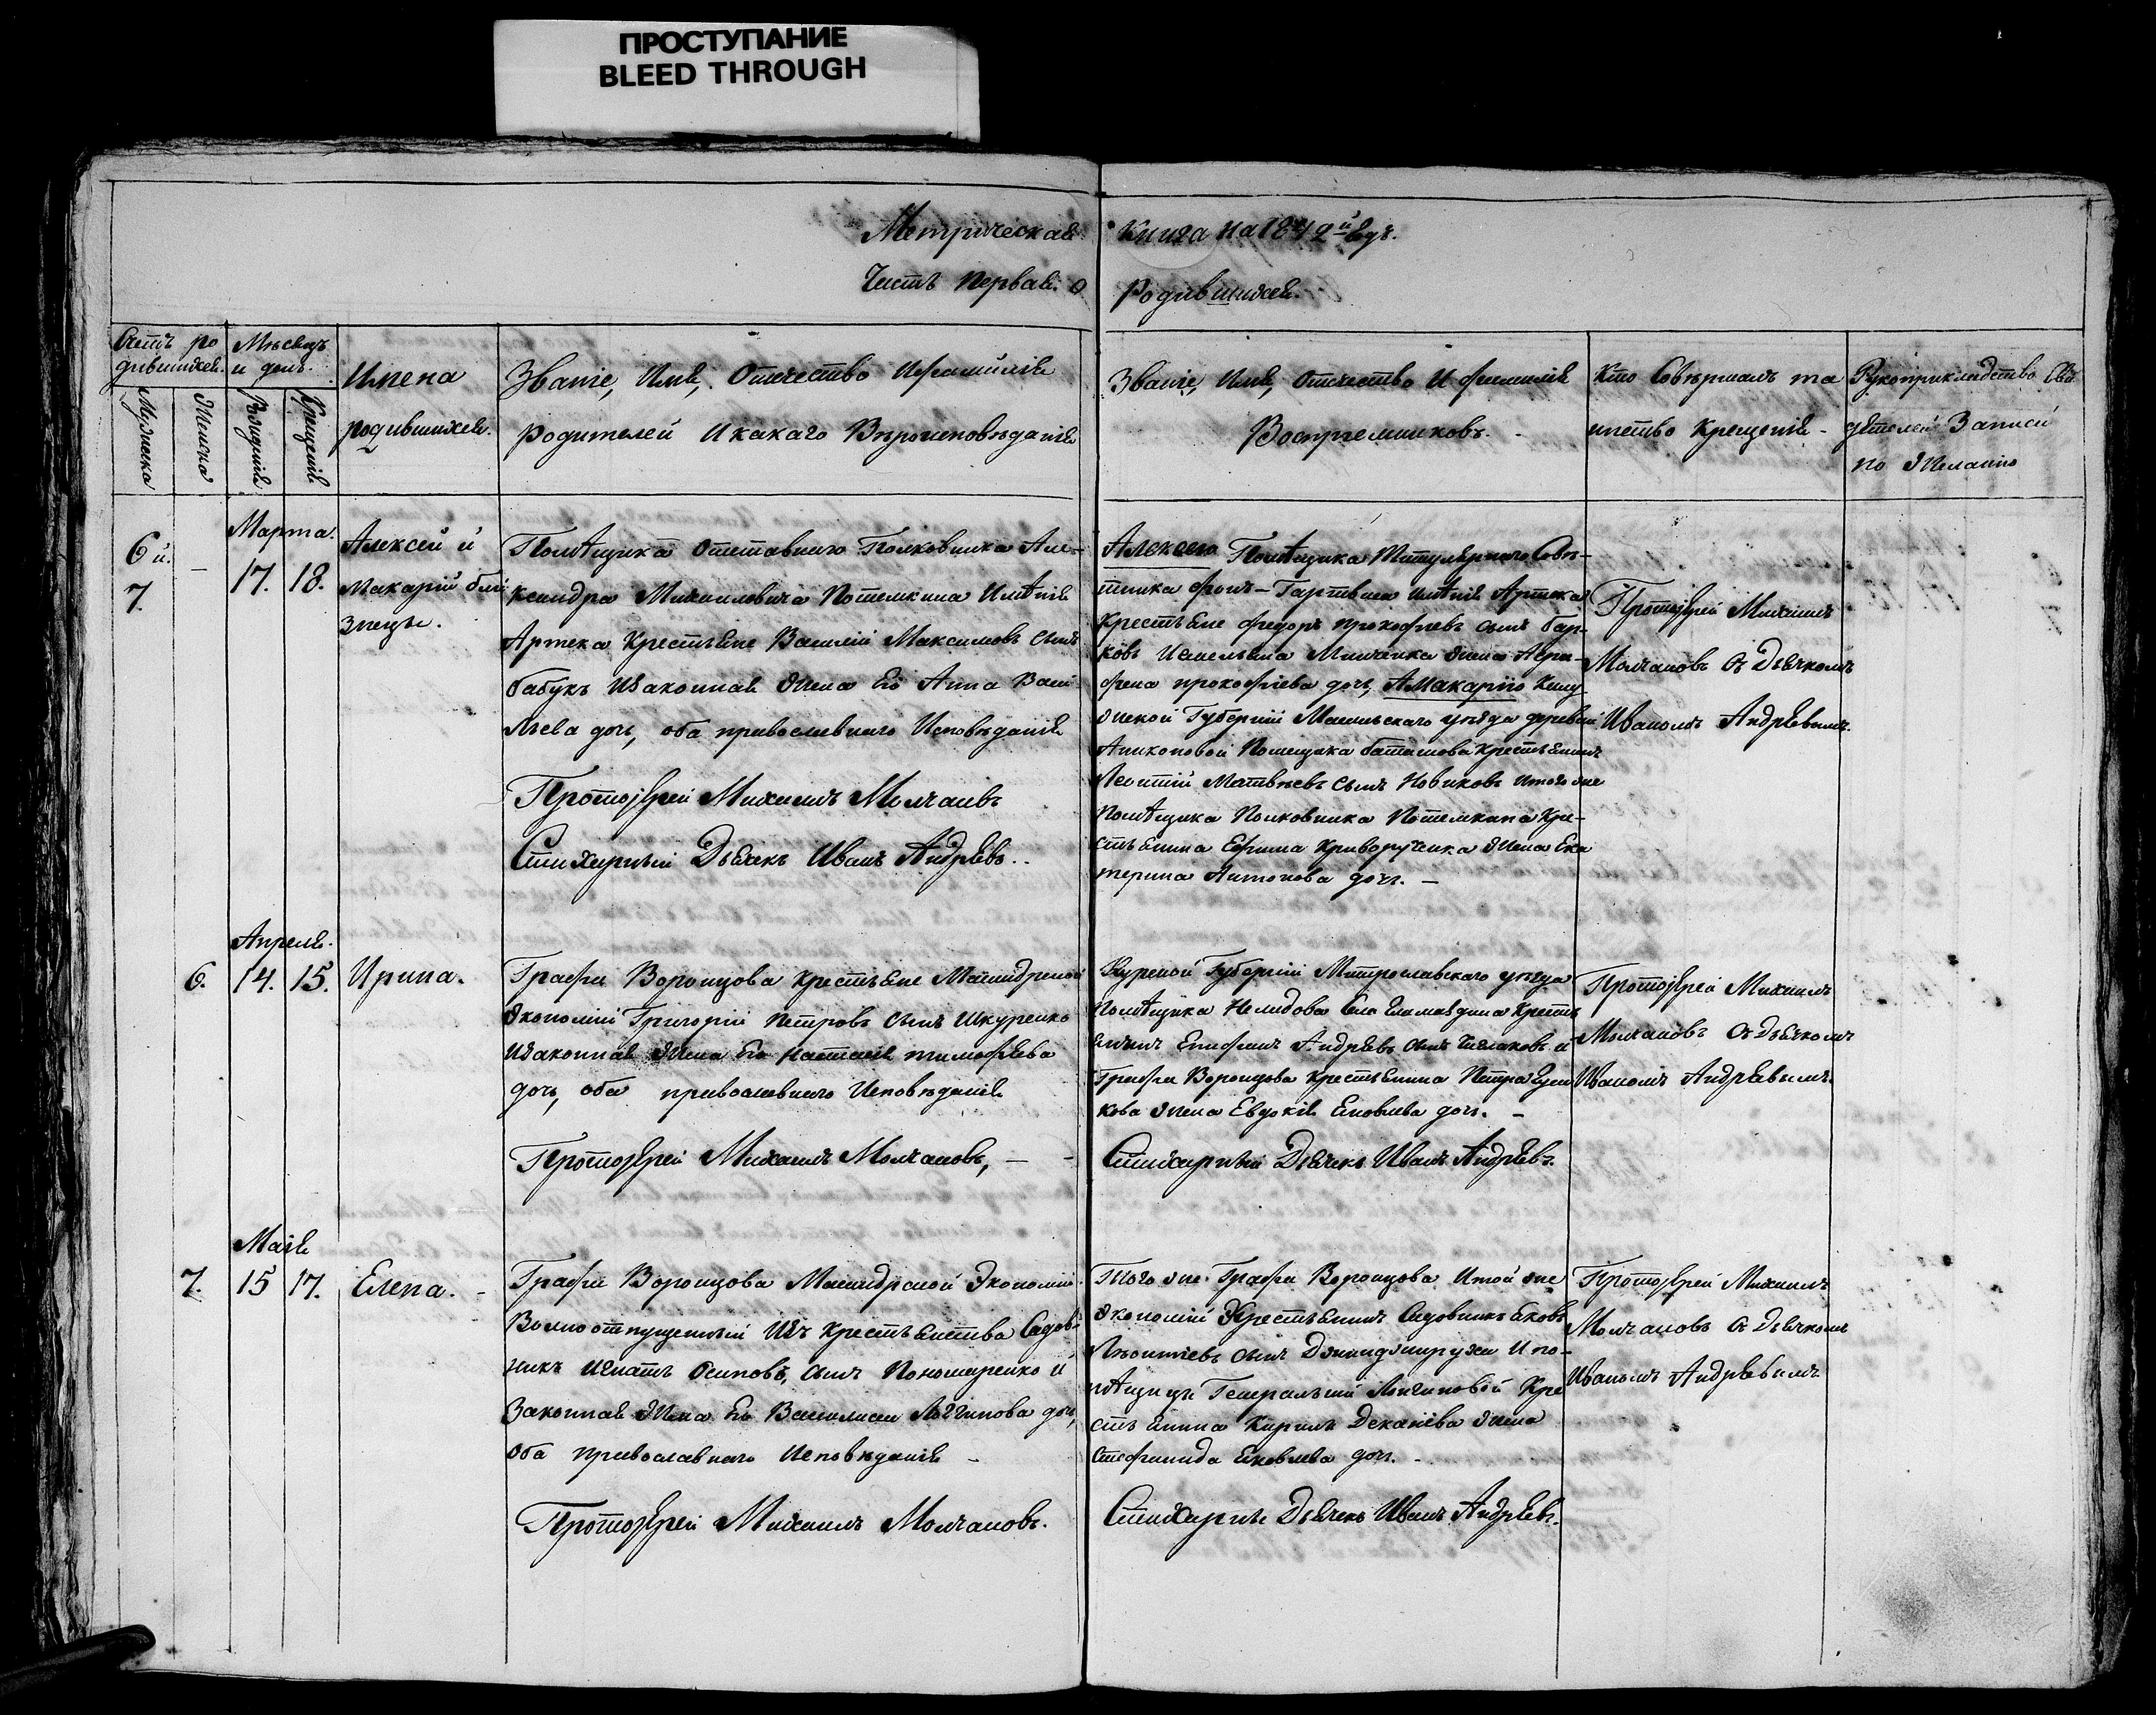 ПРОСТУПАНИЕ
BLEED THROUGH
Метрическая Книга на 1842й годъ.
Часть Первая. О Родившихся.
Счетъ ро
дившихся.
Мужеска
Женска
Мѣсяцъ
и день.
Рожденія
Крещенія
Имена
родившихся.
Званіе, Имя, Отчество И фамилія
родителей И какаго Вѣроисповѣданія
Званіе, Имя, Отчество И фамилія
Воспріемниковъ.
Кто Совершалъ та
инство Крещенія
Рукоприкладство Сви
дѣтелей Записи
по желанію
6й.
7.
Марта.
17. 18.
Алексей и
Макарій бли
знецы.
Помѣщика Отставнаго Полковника Але-
ксандра Михаиловича Потемкина Имѣнія
Артека Крестьяне Василій Максимовъ сынъ
бабукъ Изаконная Жена Его Анна Васи
льева дочь, оба православнаго Исповѣданія
Протоіерей Михаилъ Молчановъ
Стихарный Дьячекъ Иванъ Андреевъ.
Алексею Помѣщика Титулярнаго Совѣ-
тника фонъ-Гартвиса имѣнія Артека
Крестьяне федоръ прокофіевъ сынъ
Жена Агра-
фена прокофіева дочь, А Макарію Калу
жской Губерніи уѣзда деревни
Помещика баташова Крестьянинъ
Леонтій Матвѣевъ сынъ Новиковъ Итого же
Помѣщика Полковника Потемкина Кре-
стьянина Ефима Криворученка Жена Ека
терина Антонова дочь.
Протоіерей Михаилъ
Молчановъ Съ Дьячкомъ
Иваномъ Андреевымъ.
6.
Апреля.
14. 15.
Ирина.
Графа Воронцова Крестьяне Масандрской
Экономіи Григорій Петровъ сынъ Шкуренко
Изаконная Жена Его Настасія тимофеева
дочь, оба православнаго Исповѣданія
Протоіерей Михаилъ Молчановъ,
Курской Губерніи уѣзда
Помѣщика Нелидова Села Кресть
янинъ Епифанъ Андреевъ сынъ и
Графа Воронцова Крестьянина Петра
кова Жена Евдокія Яковлева дочь.
Стихарный Дьячекъ Иванъ Андреевъ.
Протоіерей Михаилъ
Молчановъ Съ Дьячкомъ
Иваномъ Андреевымъ.
7.
Маія
15 17.
Елена.
Графа Воронцова Масандрской Экономіи
Вольноотпущенный Изъ Крестьянства Садов-
никъ Игнатъ Осиповъ, сынъ Пономаренко и
Законная Жена Его Василиса Логгинова дочь,
Оба православнаго Исповѣданія
Протоіерей Михаилъ Молчановъ.
Того же Графа Воронцова Итой же
Экономіи Крестьянинъ Садовникъ Яковъ
Леонтіевъ сынъ И по-
мѣщицы Генеральши Кре
стьянина Кирила Жена
Стефанида Яковлева дочь.
Стихарный Дьячекъ Иванъ Андреевъ.
Протоіерей Михаилъ
Молчановъ Съ Дьячкомъ
Иваномъ Андреевымъ